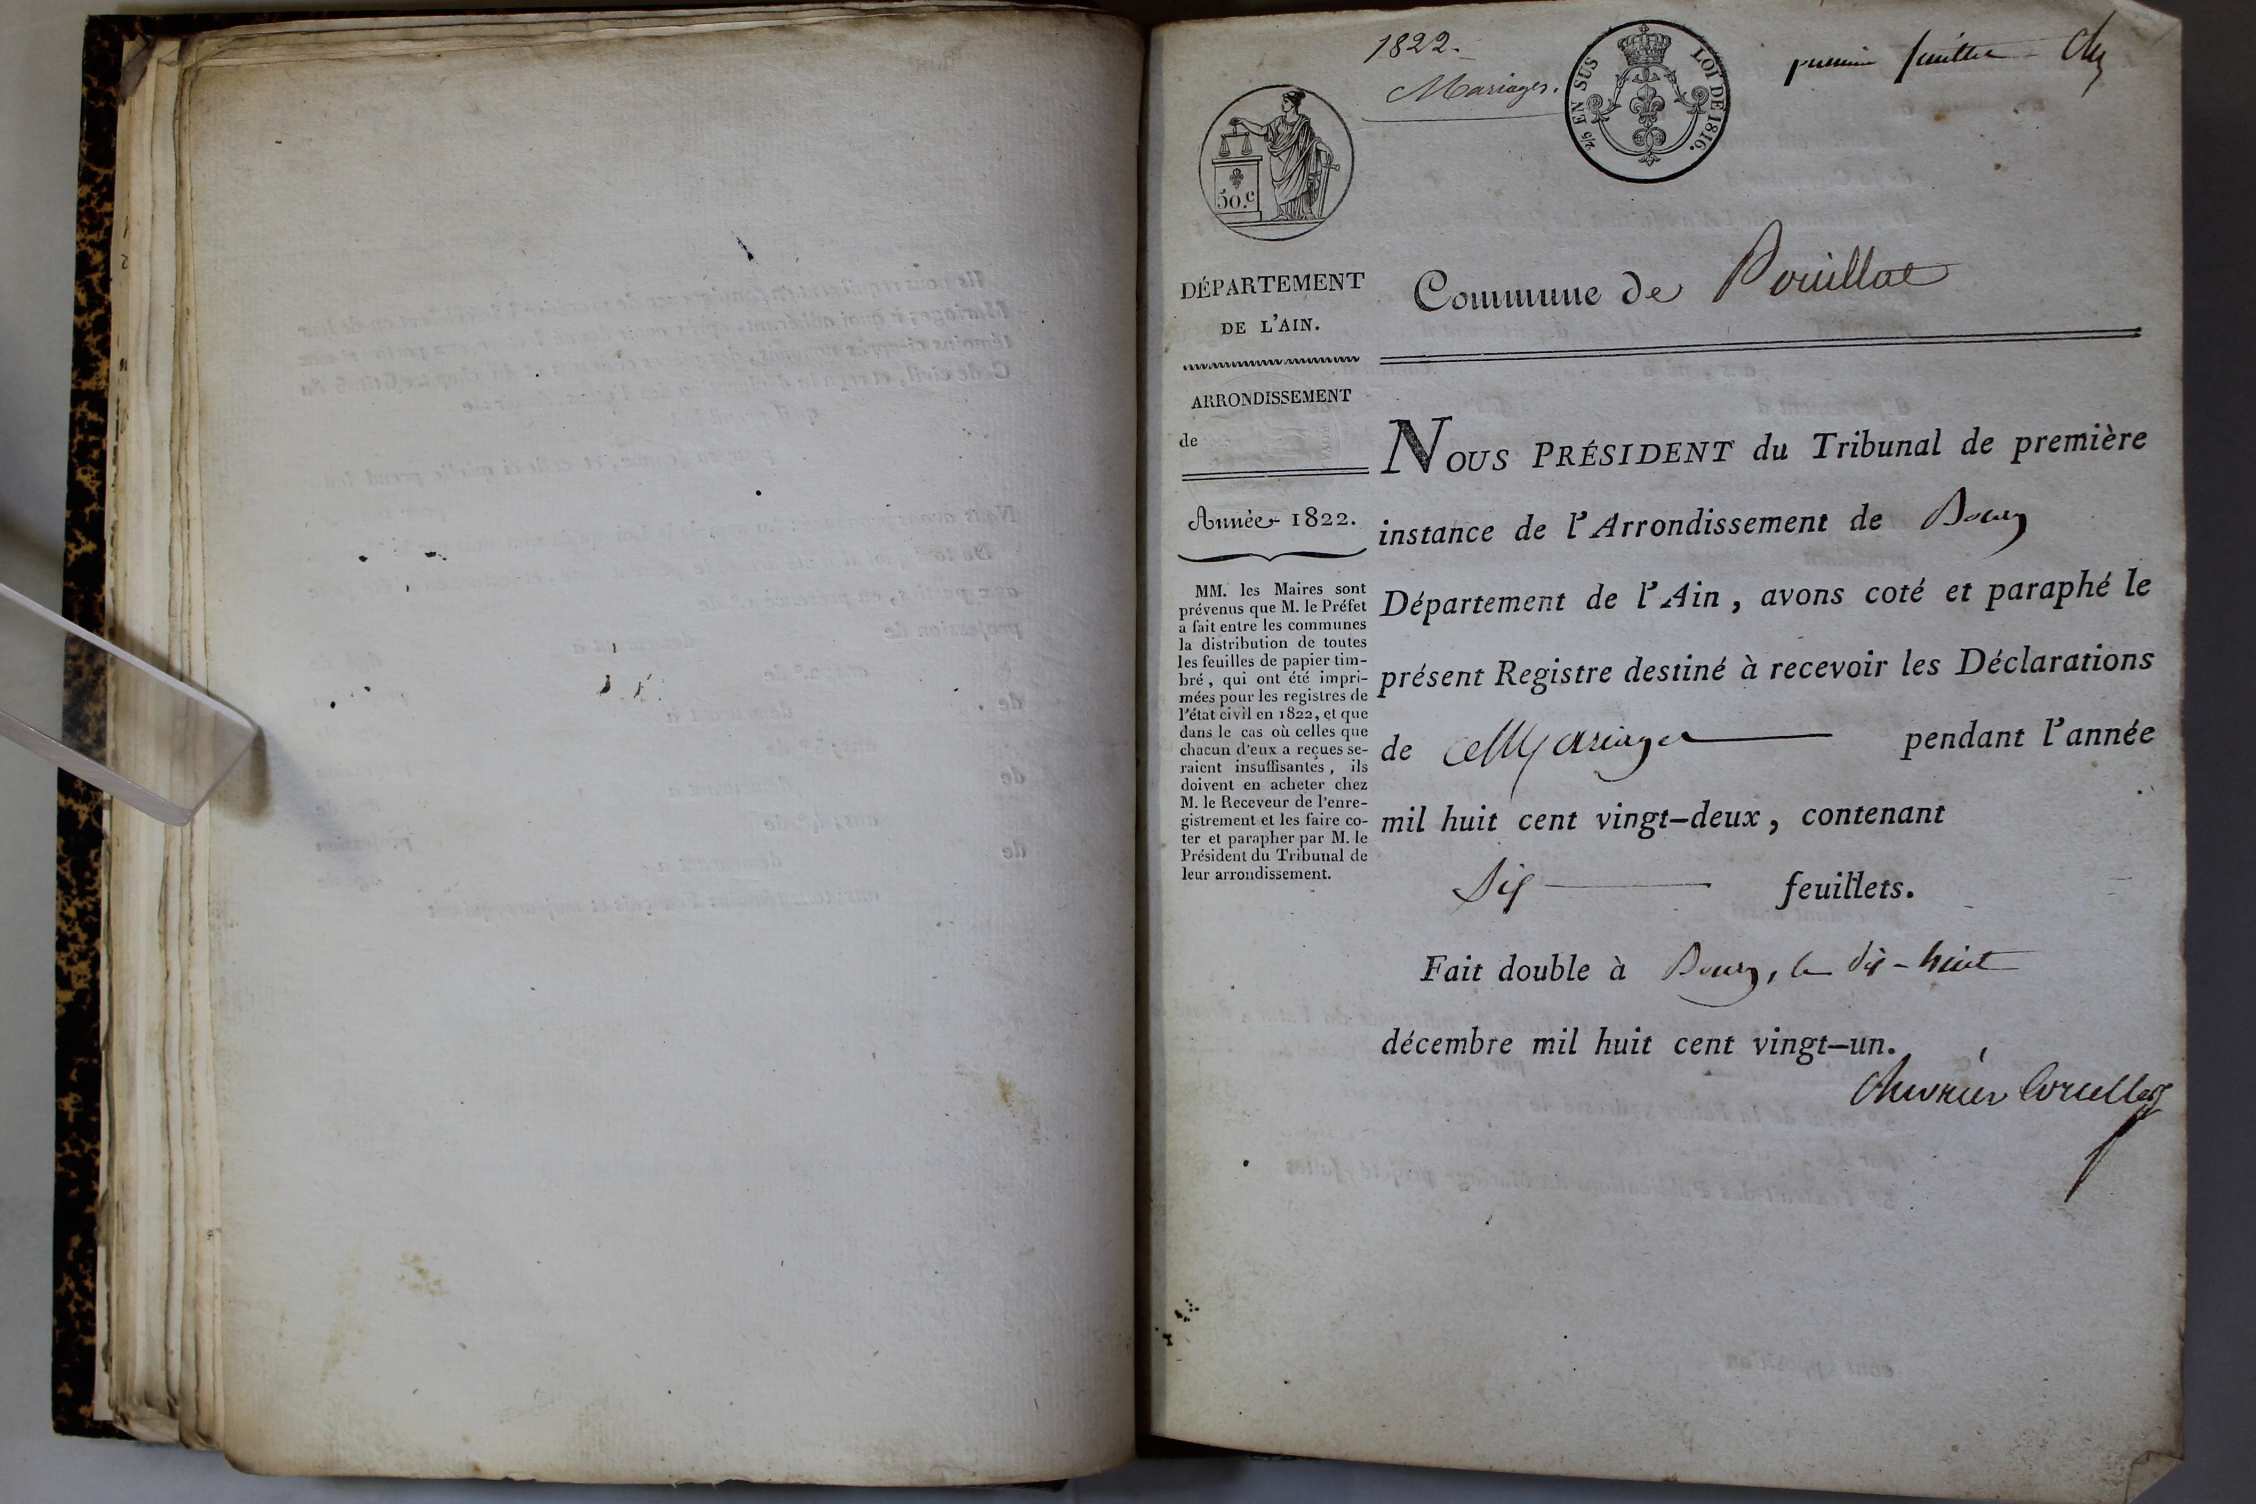 1822.
Mariages.
2/5 EN SUS
LOI DE 1816.
premier feuillet
50.c
DÉPARTEMENT
DE L'AIN.
ARRONDISSEMENT
de
Année 1822.
MM. les Maires sont
prévenus que M. le Préfet
a fait entre les communes
la distribution de toutes
les feuilles de papier tim-
bré, qui ont été impri-
mées pour les registres de
l'état civil en 1822, et que
dans le cas où celles que
chacun d'eux a reçues se-
raient insuffisantes, ils
doivent en acheter chez
M. le Receveur de l'enre-
gistrement et les faire co-
ter et parapher par M. le
Président du Tribunal de
leur arrondissement.
Commune de Pouillat
NOUS PRÉSIDENT du Tribunal de première
instance de l'Arrondissement de Bourg
Département de l'Ain, avons coté et paraphé le
présent Registre destiné à recevoir les Déclarations
de Mariages pendant l'année
mil huit cent vingt-deux, contenant
Six feuillets.
Fait double à Bourg, le dix-huit
décembre mil huit cent vingt-un.
Chevrier Corcelles